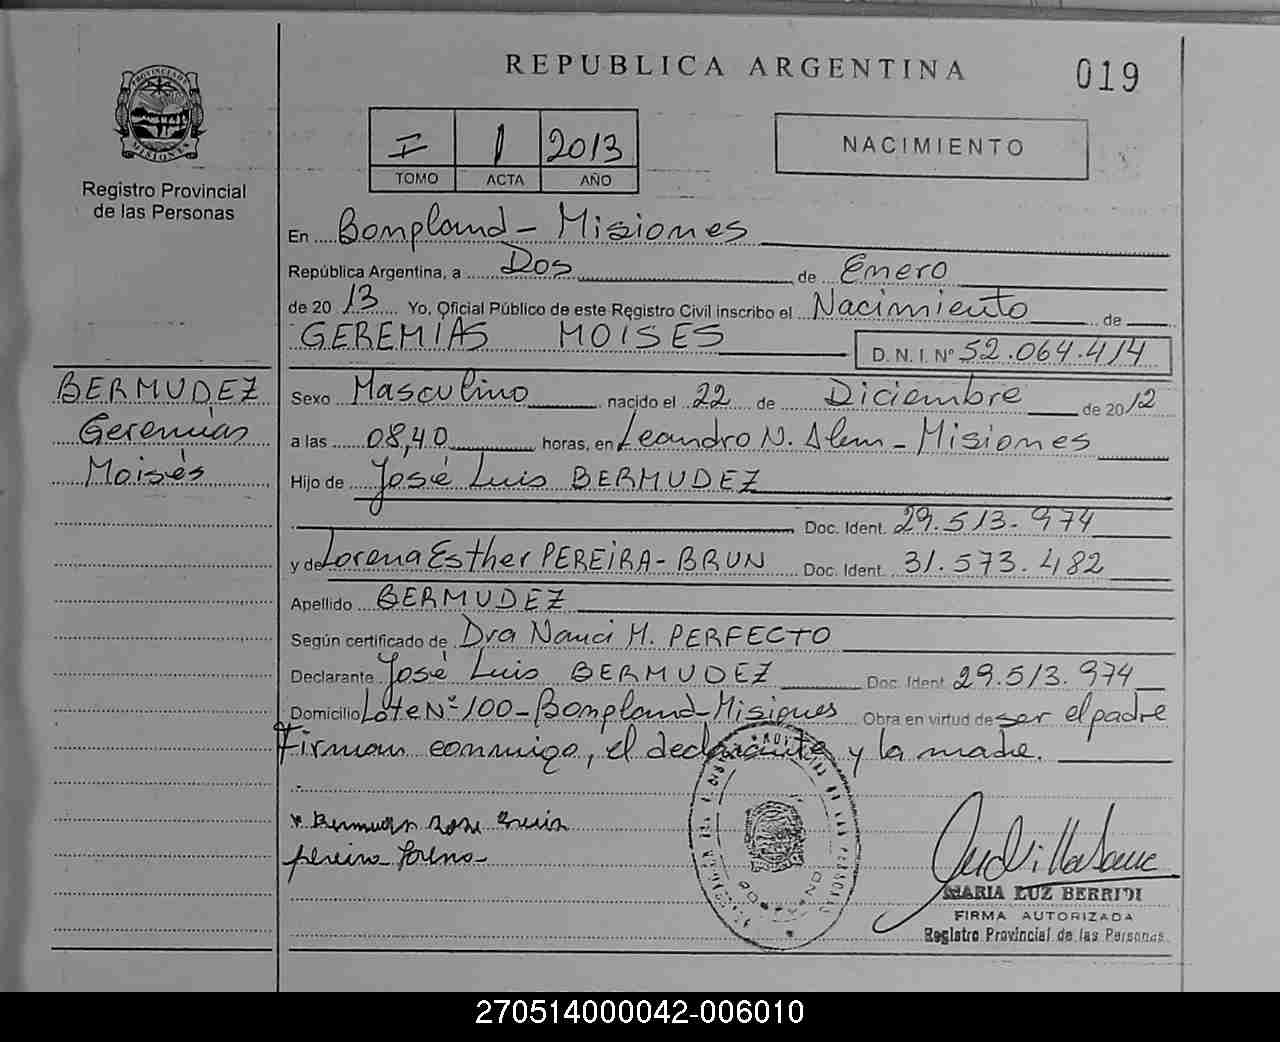 REPUBLICA ARGENTINA
019
PROVINCIA DE MISIONES
Registro Provincial
de las Personas
I 1 2013
TOMO ACTA AÑO
NACIMIENTO
En Bonpland - Misiones
República Argentina, a Dos de Enero
de 2013 Yo, Oficial Público de este Registro Civil inscribo el Nacimiento de
GEREMIAS MOISES
D. N. I. Nº 52.064.414
BERMUDEZ
Geremías
Moisés
Sexo Masculino nacido el 22 de Diciembre de 2012
a las 08,40 horas, en Leandro N. Alem - Misiones
Hijo de José Luis BERMUDEZ
Doc. Ident. 29.513.974
y de Lorena Esther PEREIRA-BRUN Doc. Ident. 31.573.482
Apellido BERMUDEZ
Según certificado de Dra Nanci M. PERFECTO
Declarante José Luis BERMUDEZ Doc. Ident. 29.513.974
Domicilio Lote Nº 100 - Bonpland - Misiones Obra en virtud de ser el padre
Firman conmigo, el declarante y la madre.
Bermudez Jose Luis
pereira lorena
MARIA LUZ BERRIDI
FIRMA AUTORIZADA
Registro Provincial de las Personas
270514000042-006010